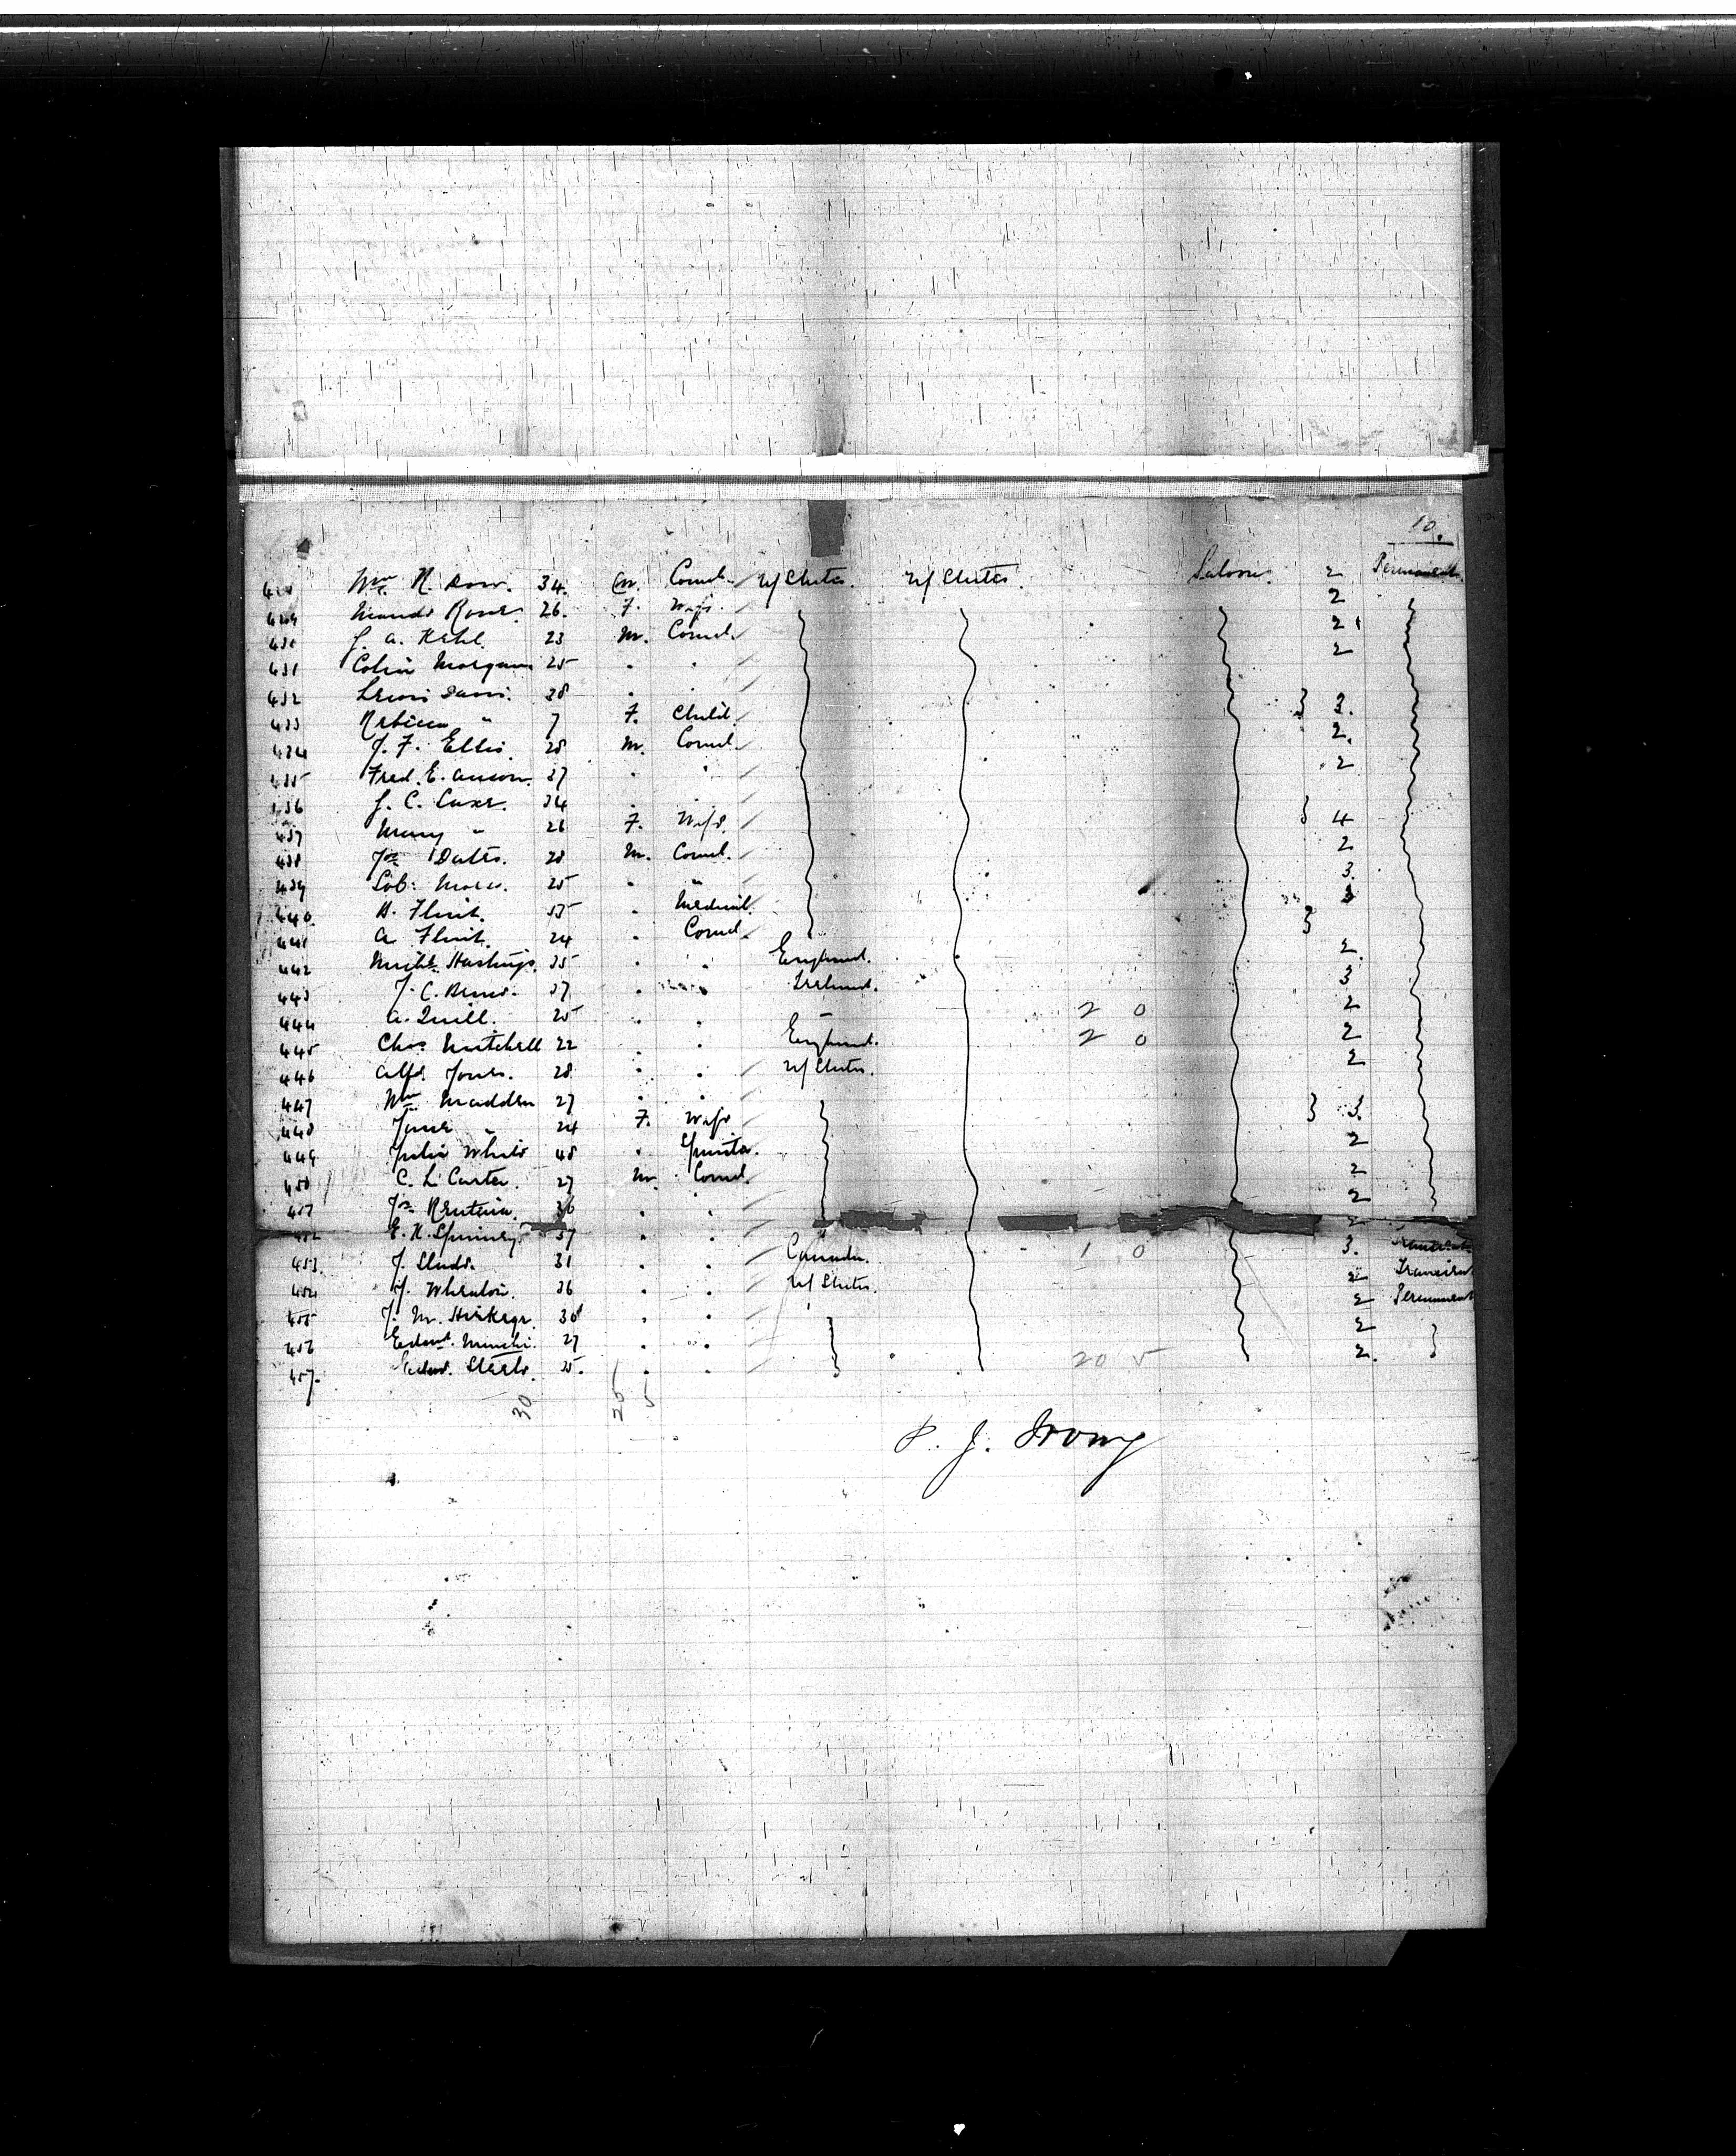 10.
Wm R. Dow. 34. M. Comml. U/States. U/States Saloon. 2 Permanent.
429 Maude Rowe. 26. F. Wife. 2
430 J. A. Kehl. 23 M. Comml. 2
431 Colin Morgan 25 " " 2
432 Lewis Davis. 28 "
433 Rebecca " 7 F. Child. } 2.
434 J. F. Ellis. 28 M. Comml. 2.
435 Fred. E. Anson. 37 " " 2
436 J. C. Caxe. 34 " "
437 Mary " 26 F. Wife. } 4
438 Jos Dates. 28 M. Comml. 2
439 Sob: 25 " " 3.
440 H. Flint. 55 " Medical. 3
441 A Flint. 24 " Comml. }
442 Michl. Hastings. 35 " " England. 2
443 J. C. 37 " " Ireland. 3
444 A. Quill. 25 " " " 2 0 2
445 Chas Mitchell 22 " " England. 2 0 2
446 Alfd. Jones. 28 " " U/States. 2
447 Wm Madden 27 " "
448 Jane " 24 F. Wife } 3.
449 Julia White 48 " Spinster. 2
450 C. L. Carter. 27 M. Comml. 2
451 Jos 36 " " 2
452 E. K. Spinney. 37 " " 2
453. J. Slade. 31 " " Canada. 1 0 3. Transient
454 J. Wheaton. 36 " " U/States. 2 Transient
455 J. M. 38 " " 2 Permanent
456 Edwd. 27 " " 2 }
457. Edwd. Steele. 25. " " 20 5 2.
30 25 5
P. J. Irving